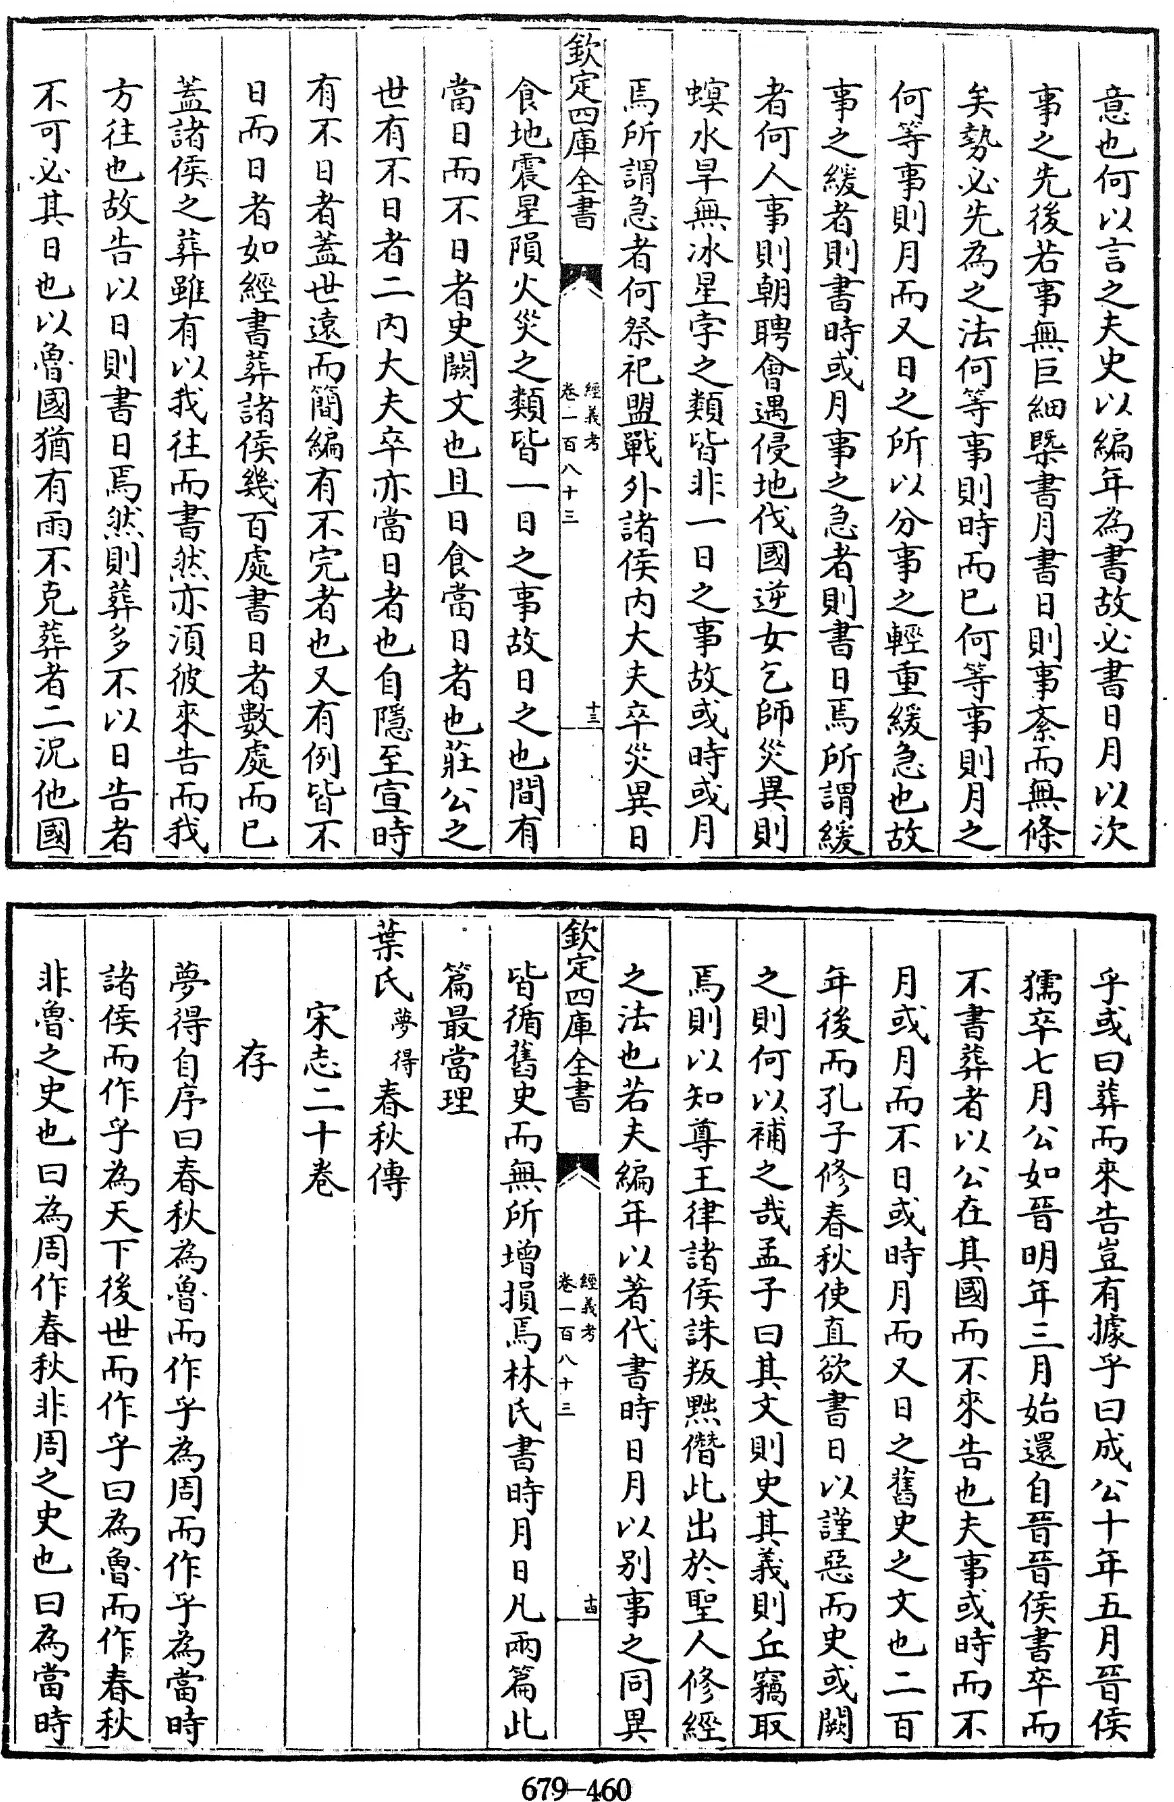 意也何以言之夫史以編年為書故必書日月以次
事之先後若事無巨細槩書月書日則事紊而無條
矣勢必先為之法何等事則時而已何等事則月之
何等事則月而又日之所以分事之輕重緩急也故
事之緩者則書時或月事之急者則書日焉所謂緩
者何人事則朝聘會遇侵地伐國逆女乞師災異則
螟水旱無冰星孛之類皆非一日之事故或時或月
焉所謂急者何祭祀盟戰外諸侯内大夫卒災異日
欽定四庫全書
經義考
卷一百八十三
十三
食地震星隕火災之類皆一日之事故日之也間有
當日而不日者史闕文也且日食當日者也莊公之
世有不日者二内大夫卒亦當日者也自隱至宣時
有不日者蓋世遠而簡編有不完者也又有例皆不
日而日者如經書葬諸侯幾百處書日者數處而已
蓋諸侯之葬雖有以我往而書然亦湏彼來告而我
方往也故告以日則書日焉然則葬多不以日告者
不可必其日也以魯國猶有雨不克葬者二況他國
乎或曰葬而來告豈有據乎曰成公十年五月晉侯
獳卒七月公如晉明年三月始還自晉晉侯書卒而
不書葬者以公在其國而不來告也夫事或時而不
月或月而不日或時月而又日之舊史之文也二百
年後而孔子修春秋使直欲書日以謹惡而史或闕
之則何以補之哉孟子曰其文則史其義則丘竊取
焉則以知尊王律諸侯誅叛黜僭此出於聖人修經
之法也若夫編年以著代書時日月以别事之同異
欽定四庫全書
經義考
卷一百八十三
十四
皆循舊史而無所增損焉林氏書時月日凡兩篇此
篇最當理
葉氏夢得春秋傳
宋志二十卷
存
夢得自序曰春秋為魯而作乎為周而作乎為當時
諸侯而作乎為天下後世而作乎曰為魯而作春秋
非魯之史也曰為周作春秋非周之史也曰為當時
679—460